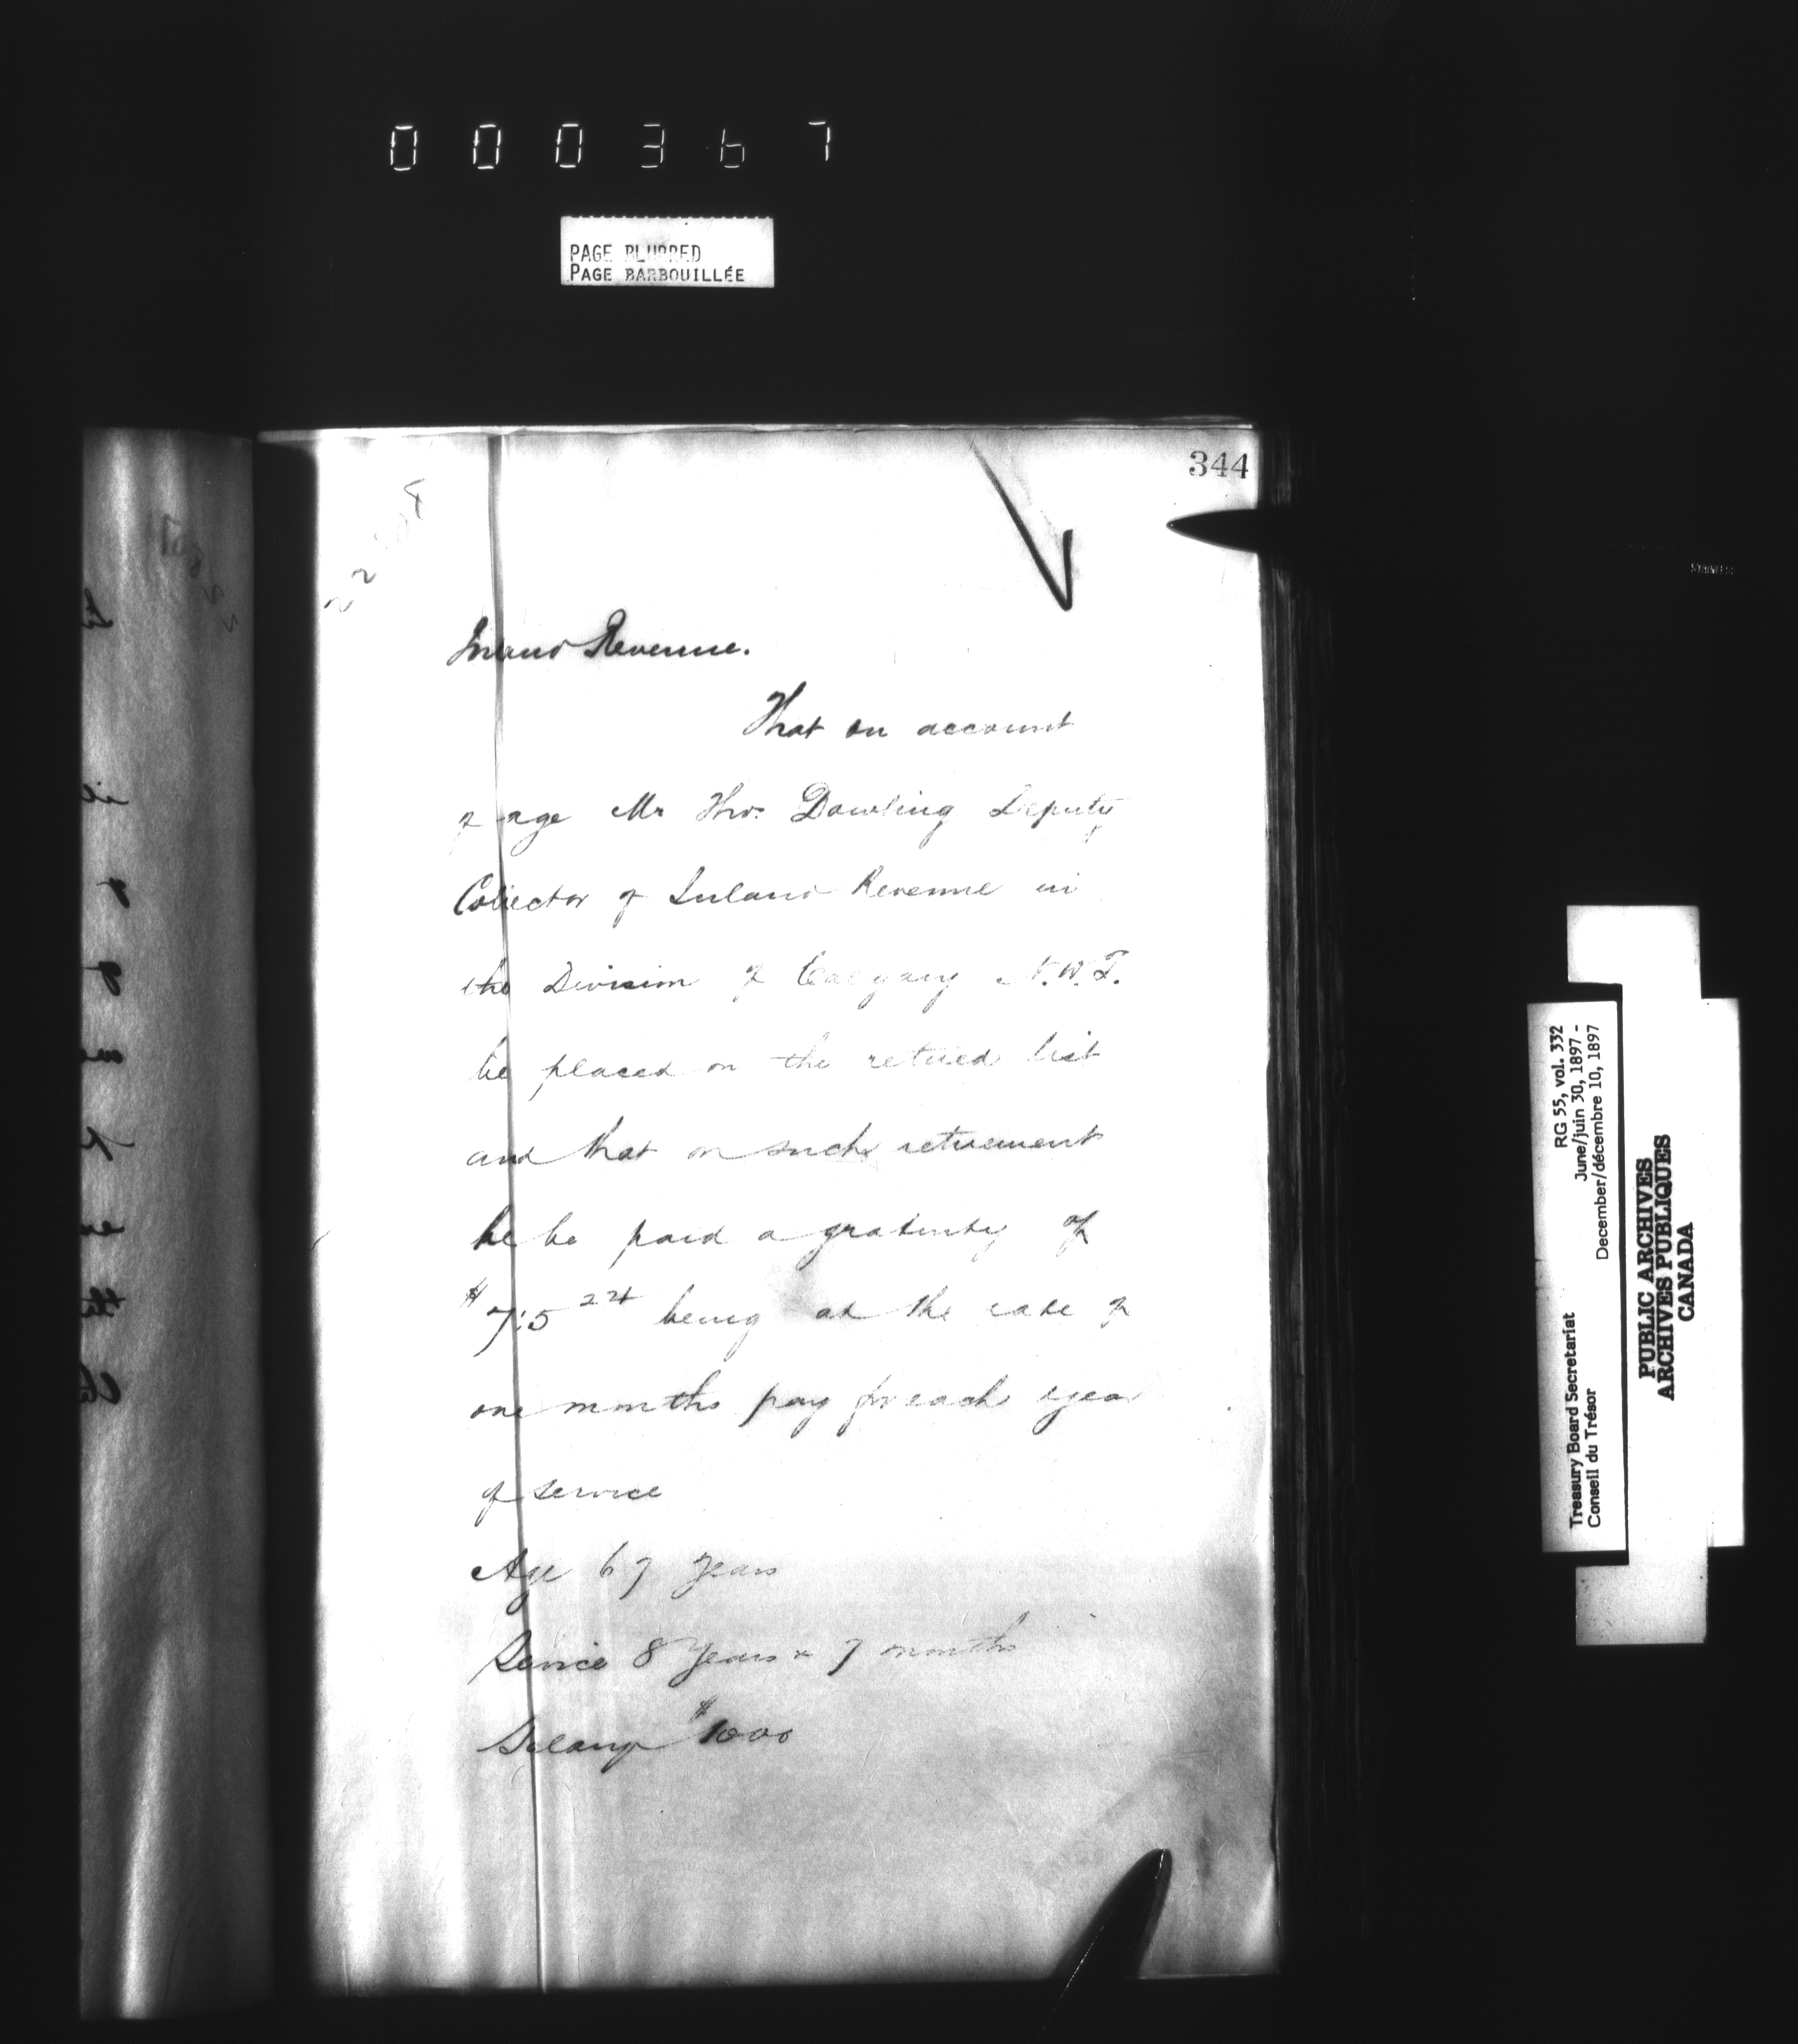 0 0 0 3 6 7
PAGE BLURRED
PAGE BARBOUILLÉE
344
Inland Revenue.
That on account
of age Mr Thos. Dowling Deputy
Collector of Inland Revenue in
the Division of Calgary N.W.T.
be placed on the retired list
and that on such retirement
he be paid a gratuity of
$715 24 being at the rate of
one months pay for each year
of service
Age 67 years
Service 8 years & 7 months
Salary $1000
RG 55, vol. 332
June/juin 30, 1897 -
December/décembre 10, 1897
Treasury Board Secretariat
Conseil du Trésor
PUBLIC ARCHIVES
ARCHIVES PUBLIQUES
CANADA